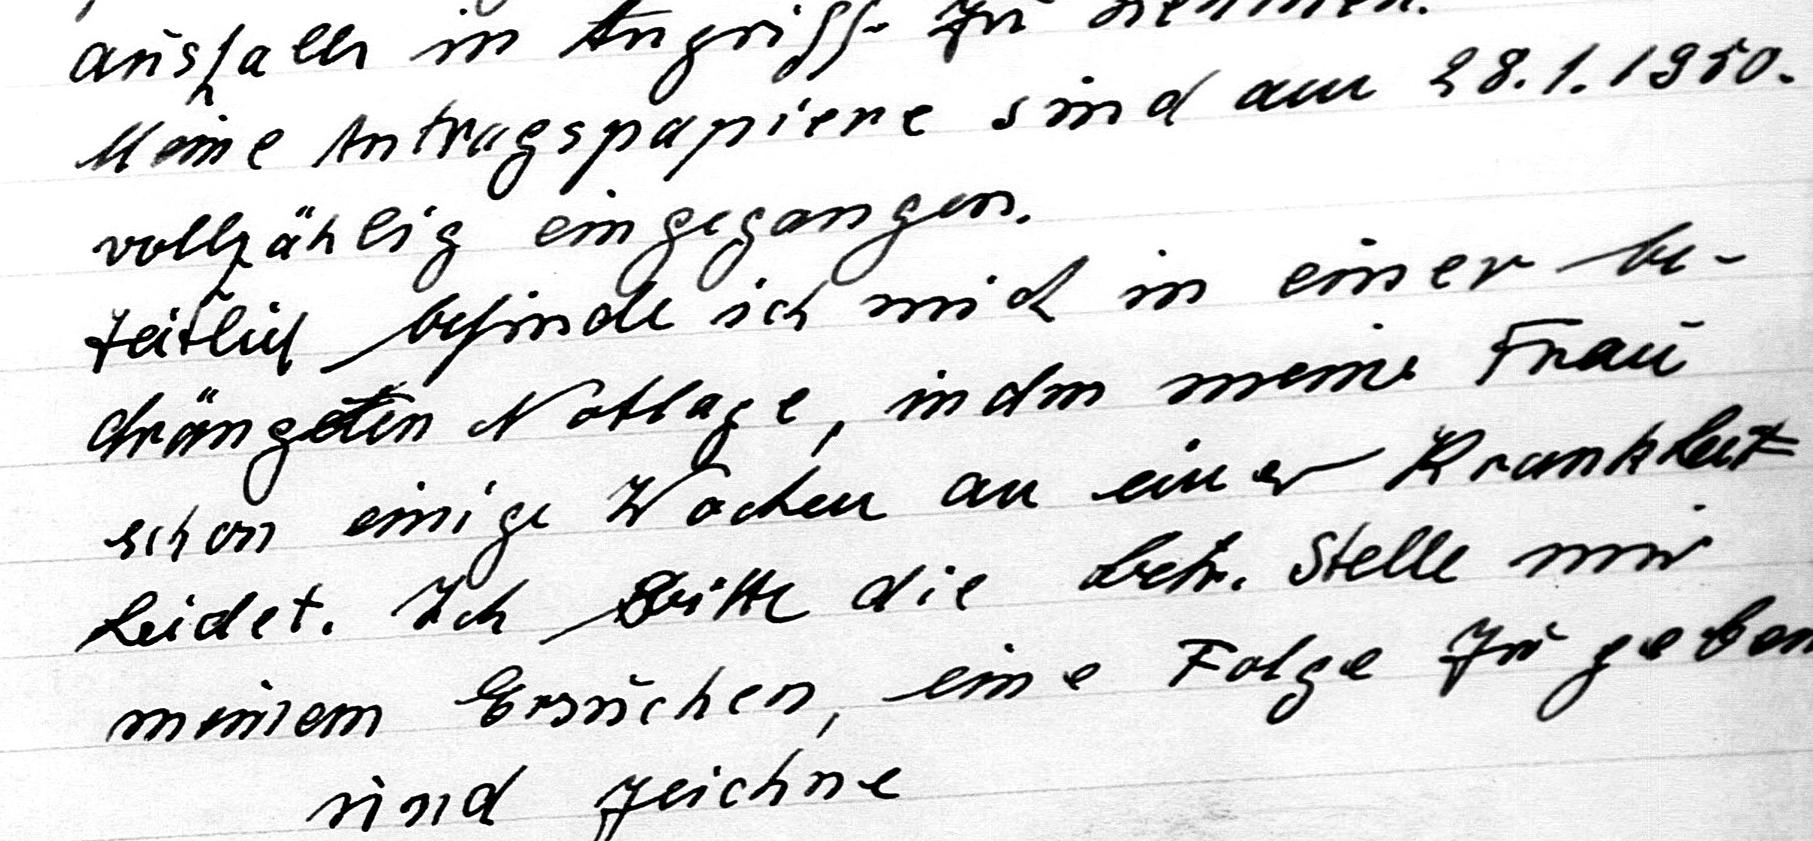 ausfalls in Angriff zu nehmen.
Meine Antragspapiere sind am 28.1.1950.
vollzählig eingegangen.
Zeitlich befinde ich mich in einer be-
drängten Notlage, indm meine Frau
schon einige Wochen an einer Krankheit
leidet. Ich bitte die betr. Stelle mir
meinem Ersuchen, eine Folge zu geben
und zeichne